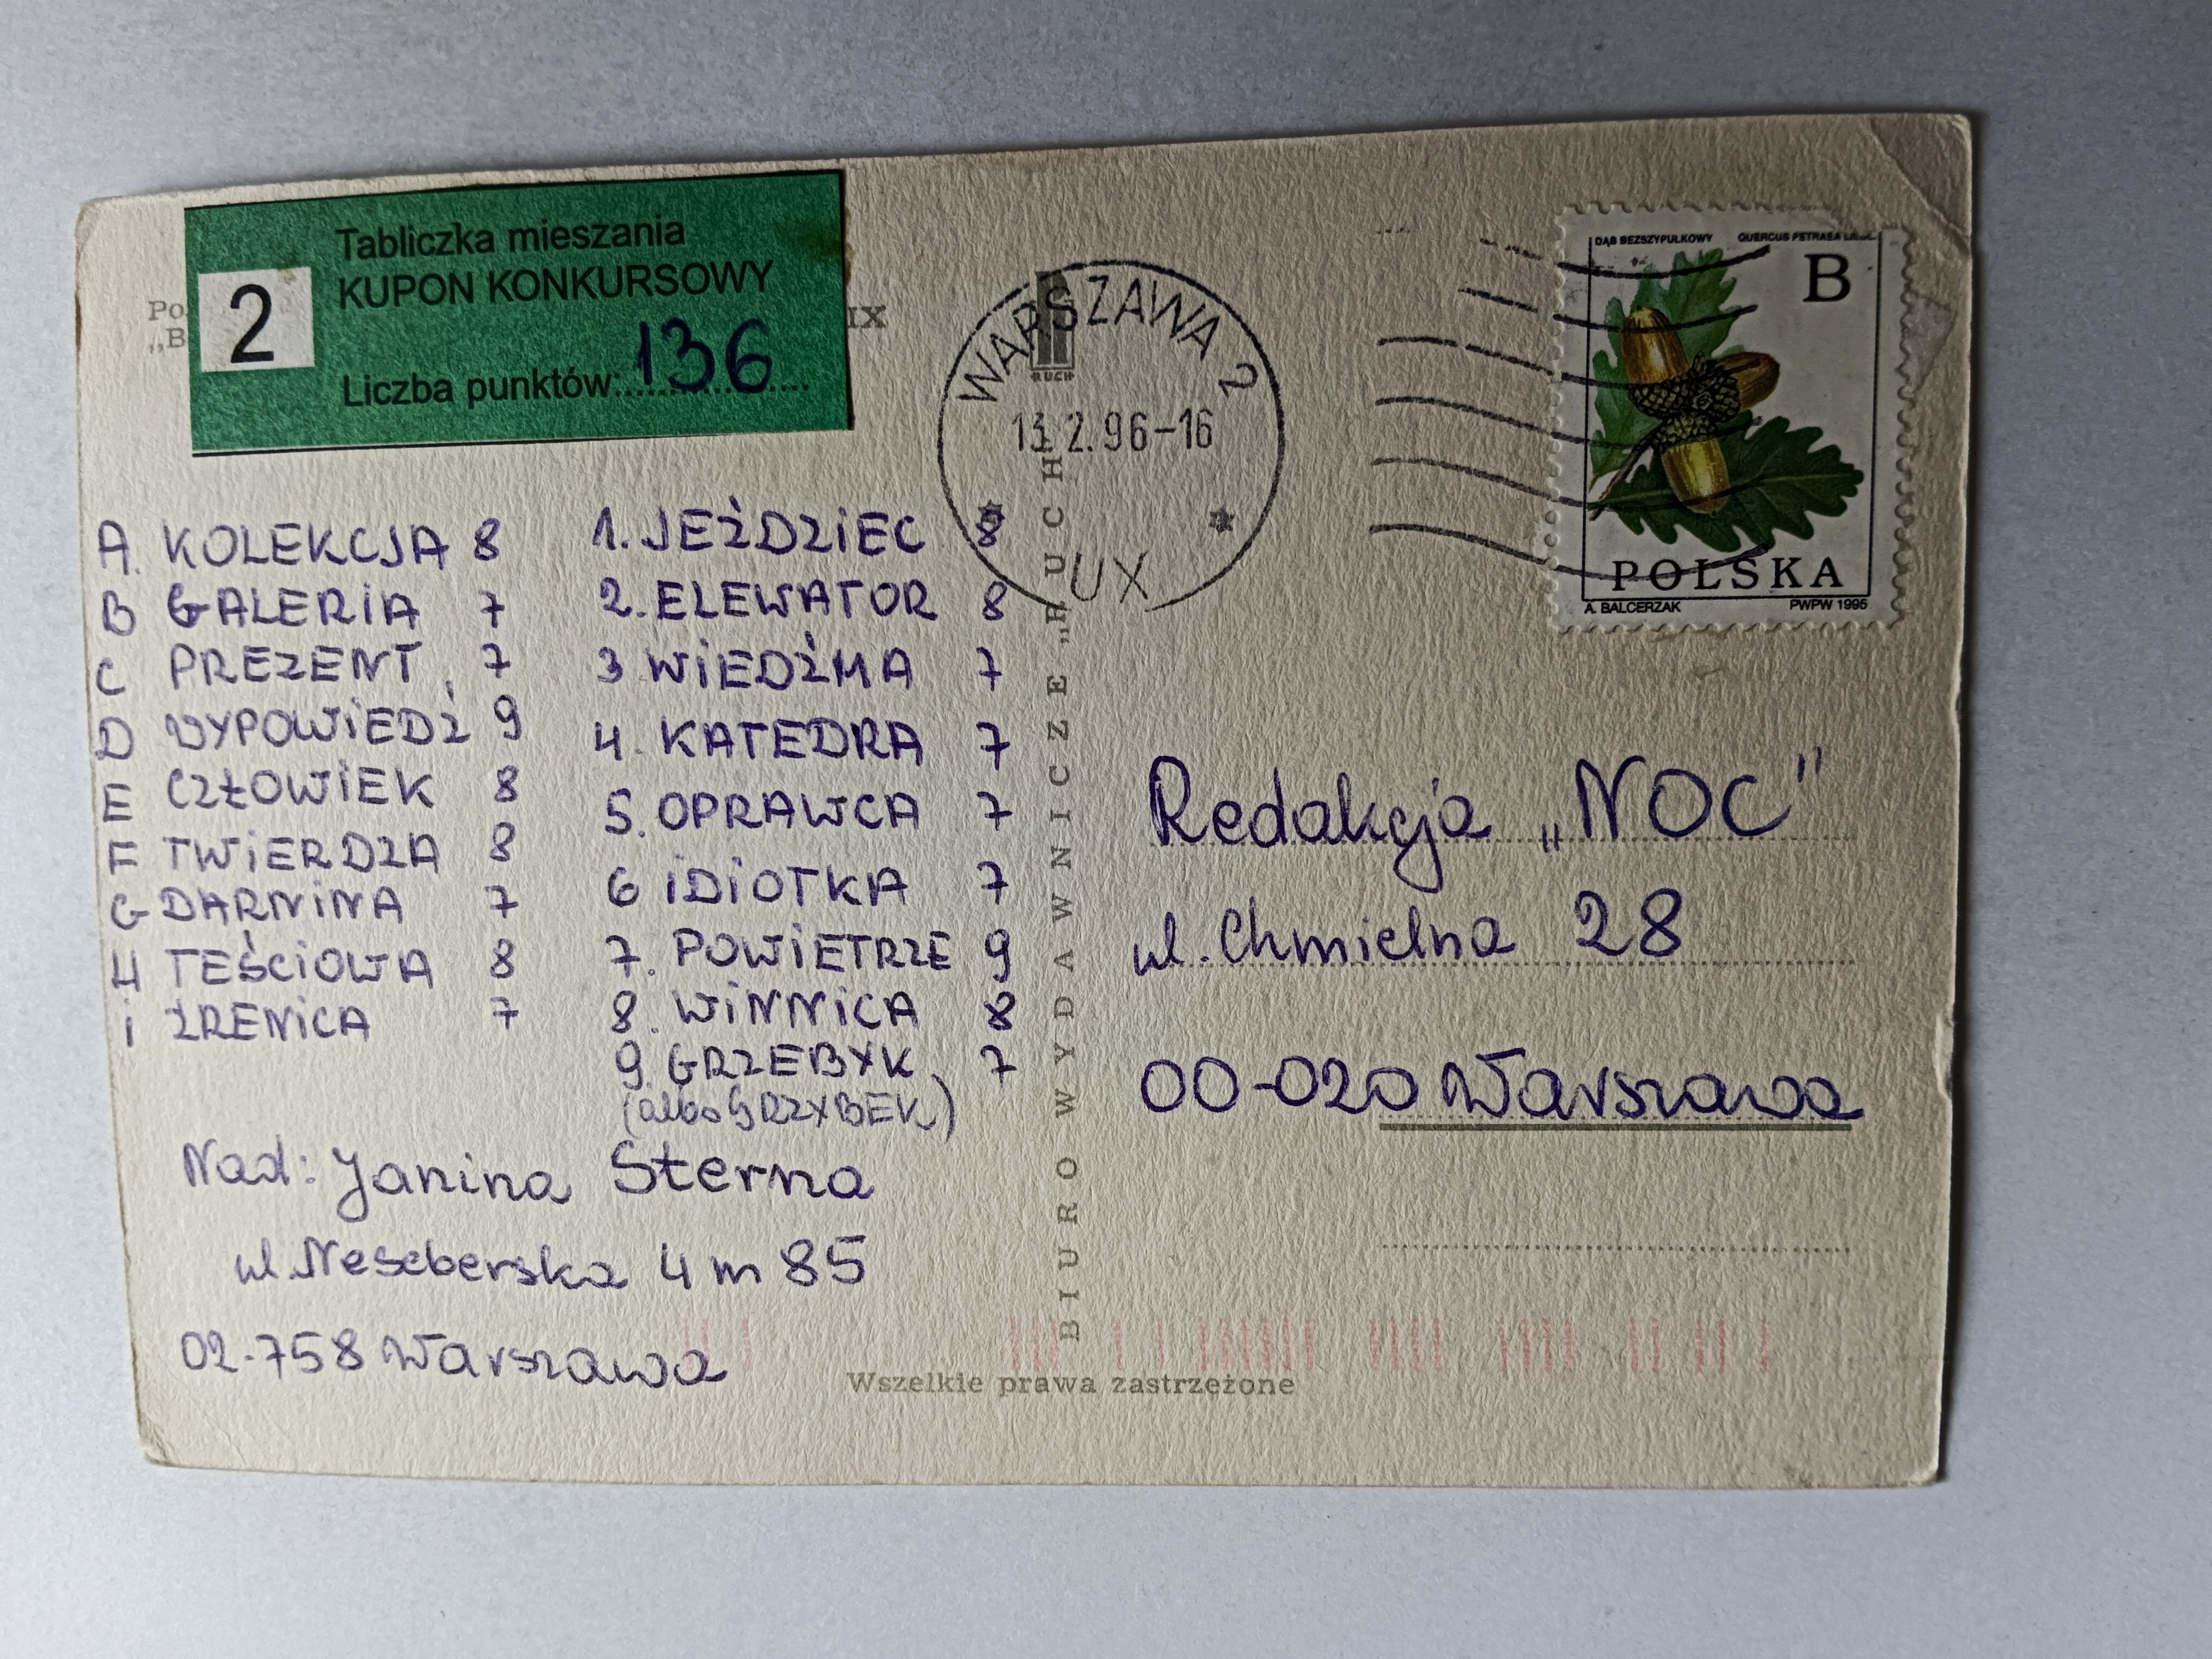 Tabliczka mieszania
2 KUPON KONKURSOWY
Liczba punktów: 136
Po
„B
IX
WARSZAWA 2
13.2.96-16
UX
RUCH
DĄB BEZSZYPUŁKOWY QUERCUS PETRAEA
B
POLSKA
A. BALCERZAK PWPW 1995
A. KOLEKCJA 8
B GALERIA 7
C PREZENT 7
D WYPOWIEDŹ 9
E CZŁOWIEK 8
F TWIERDZA 8
G DARNINA 7
H TEŚCIOWA 8
i ŹRENICA 7
1. JEŹDZIEC 8
2. ELEWATOR 8
3 WIEDŹMA 7
4. KATEDRA 7
5. OPRAWCA 7
6 IDIOTKA 7
7. POWIETRZE 9
8. WINNICA 8
9. GRZEBYK 7
(albo GRZYBEK)
Nad: Janina Sterna
ul. Neseberska 4 m 85
02-758 Warszawa
BIURO WYDAWNICZE „RUCH
Redakcja „NOC"
ul. Chmielna 28
00-020 Warszawa
Wszelkie prawa zastrzeżone